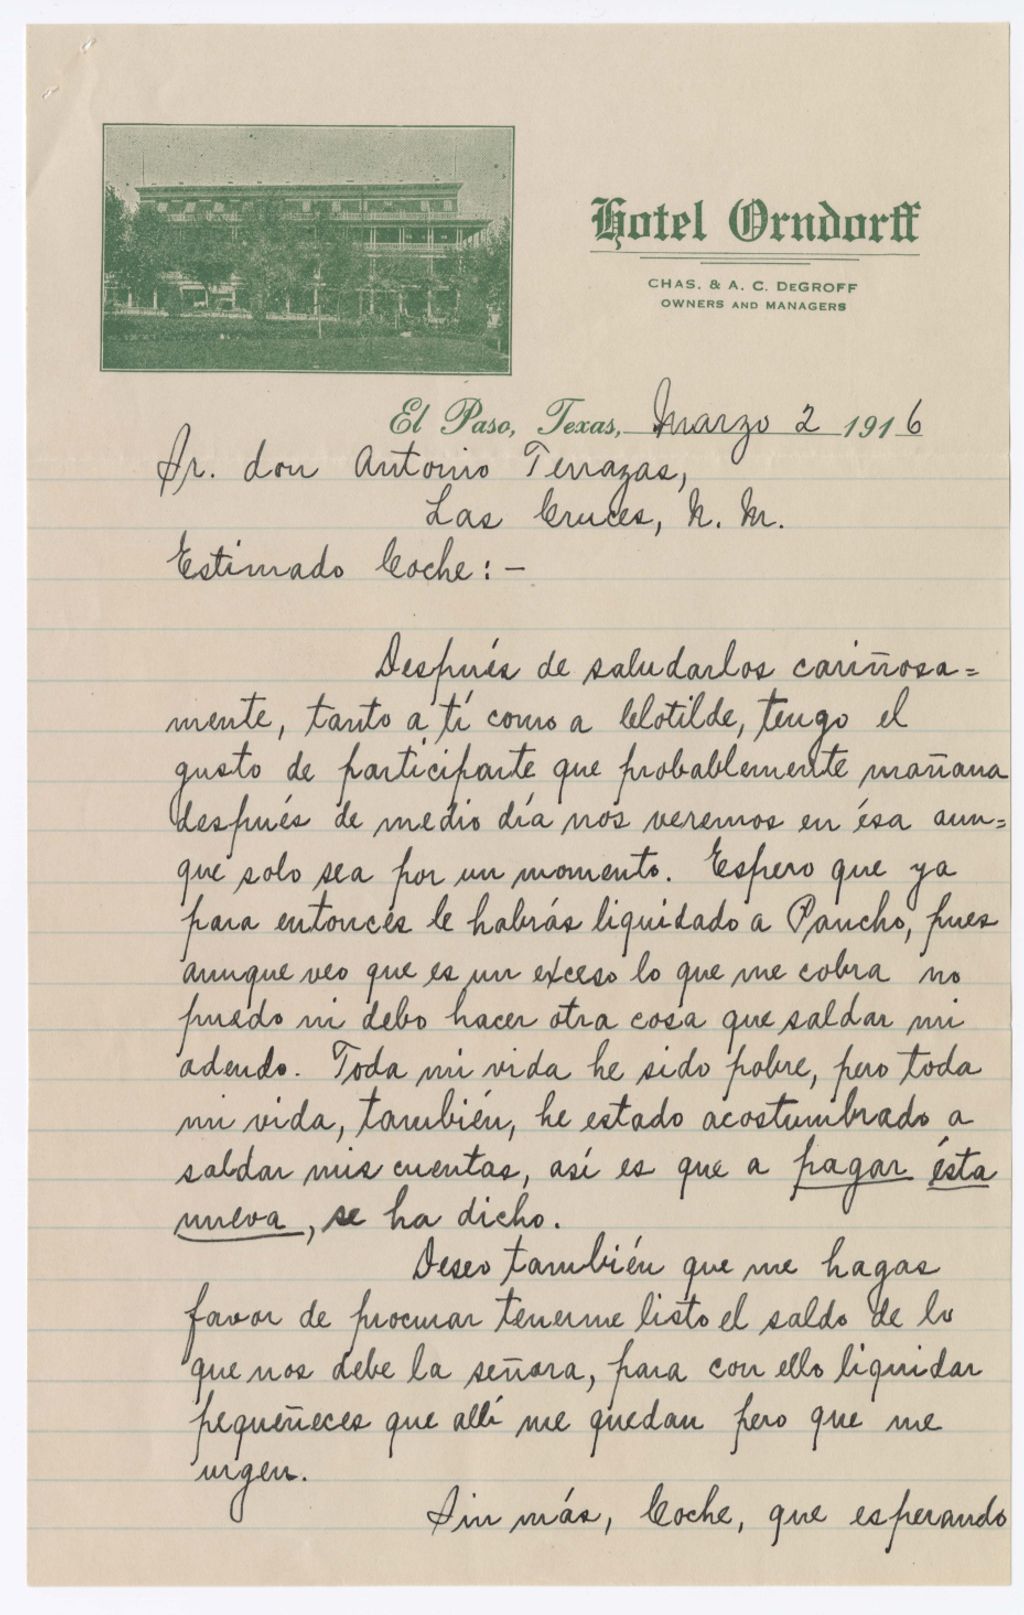 Hotel Orndorff
CHAS. & A. C. DeGROFF
OWNERS AND MANAGERS
El Paso, Texas, Marzo 2 1916
Sr. don Antonio Terrazas,
Las Cruces, N. M.
Estimado Coche: -
Después de saludarlos cariñosa=
mente, tanto a tí como a Clotilde, tengo el
gusto de participarte que probablemente mañana
después de medio día nos veremos en ésa aun=
que solo sea por un momento. Espero que ya
para entonces le habrás liquidado a Pancho, pues
aunque veo que es un exceso lo que me cobra no
puedo ni debo hacer otra cosa que saldar mi
adeudo. Toda mi vida he sido pobre, pero toda
mi vida, también, he estado acostumbrado a
saldar mis cuentas, así es que a pagar ésta
nueva, se ha dicho.
Deseo también que me hagas
favor de procurar tenerme listo el saldo de lo
que nos debe la señora, para con ello liquidar
pequeñeces que allí me quedan pero que me
urgen.
Sin más, Coche, que esperando